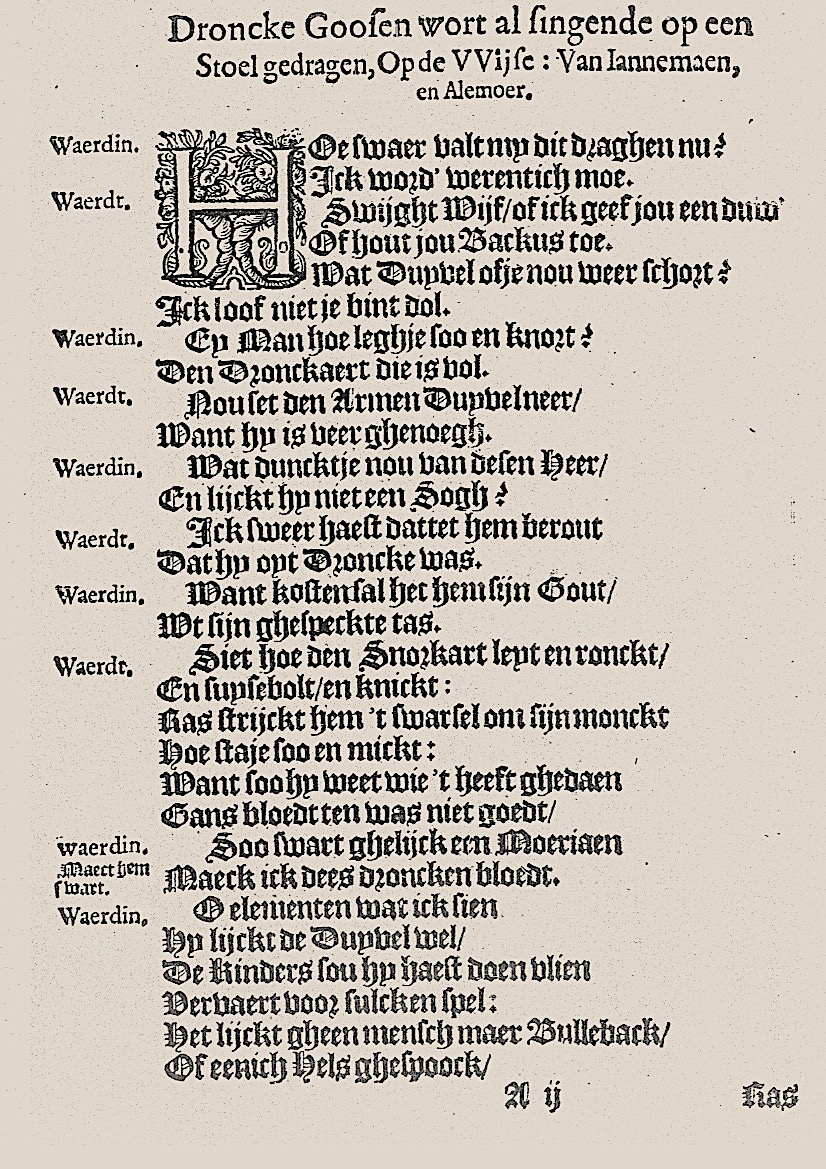 Droncke Gooſen wort al ſingende op een
Stoel gedragen, Op de VVijſe : Van Iannemaen,
en Alemoer.
Waerdin. HOe ſwaer valt my dit draghen nu?
Ick word' werentich moe.
Waerdt. Swijght Wijf/ of ick geef jou een duw'
Of hout jou Backus toe.
Wat Duyvel ofje nou weer ſchort?
Ick loof niet je bint dol.
Waerdin. Ey Man hoe leghje ſoo en knort?
Den Dronckaert die is vol.
Waerdt. Nou ſet den Armen Duyvel neer/
Want hy is veer ghenoegh.
Waerdin. Wat duncktje nou van deſen Heer/
En lijckt hy niet een Sogh?
Waerdt. Ick ſweer haeſt dattet hem berout
Dat hy oyt Droncke was.
Waerdin. Want koſten ſal het hem ſijn Gout/
Wt ſijn gheſpeckte tas.
Waerdt. Siet hoe den Snorkart leyt en ronckt/
En ſuyſebolt/ en knickt:
Kas ſtrijckt hem 't ſwarſel om ſijn monckt
Hoe ſtaje ſoo en mickt:
Want ſoo hy weet wie 't heeft ghedaen
Gans bloedt ten was niet goedt/
Waerdin. Soo ſwart ghelijck een Moeriaen
Maect hem ſwart. Maeck ick dees droncken bloedt.
Waerdin, O elementen wat ick ſien
Hy lijckt de Duyvel wel/
De Kinders ſou hy haeſt doen vlien
Vervaert voor ſulcken ſpel:
Het lijckt gheen menſch maer Bulleback/
Of eenich Hels gheſpoock/
A ij Kas